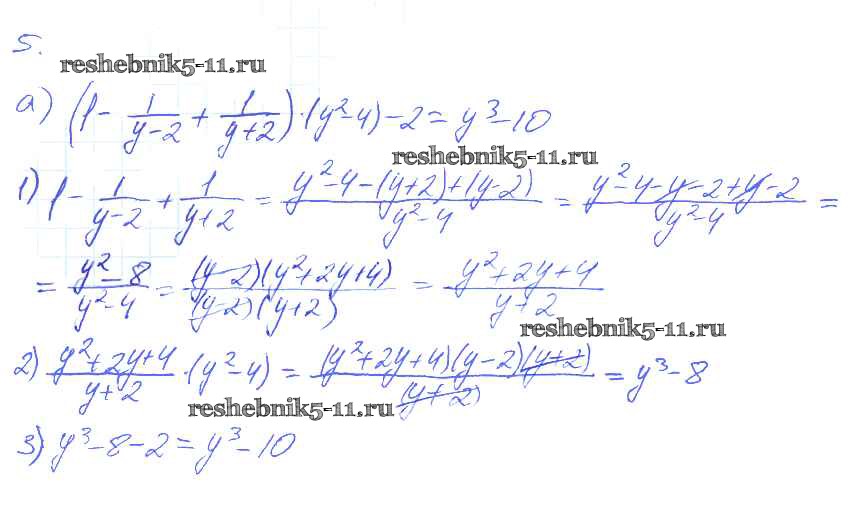 5.
reshebnik5-11.ru
а) (1 - 1/(y-2) + 1/(y+2)) · (y²-4) - 2 = y³-10
reshebnik5-11.ru
1) 1 - 1/(y-2) + 1/(y+2) = (y²-4-(y+2)+(y-2))/(y²-4) = (y²-4-y-2+y-2)/(y²-4) =
= (y²-8)/(y²-4) = ((y-2)(y²+2y+4))/((y-2)(y+2)) = (y²+2y+4)/(y+2)
reshebnik5-11.ru
2) (y²+2y+4)/(y+2) · (y²-4) = ((y²+2y+4)(y-2)(y+2))/(y+2) = y³-8
reshebnik5-11.ru
3) y³-8-2 = y³-10